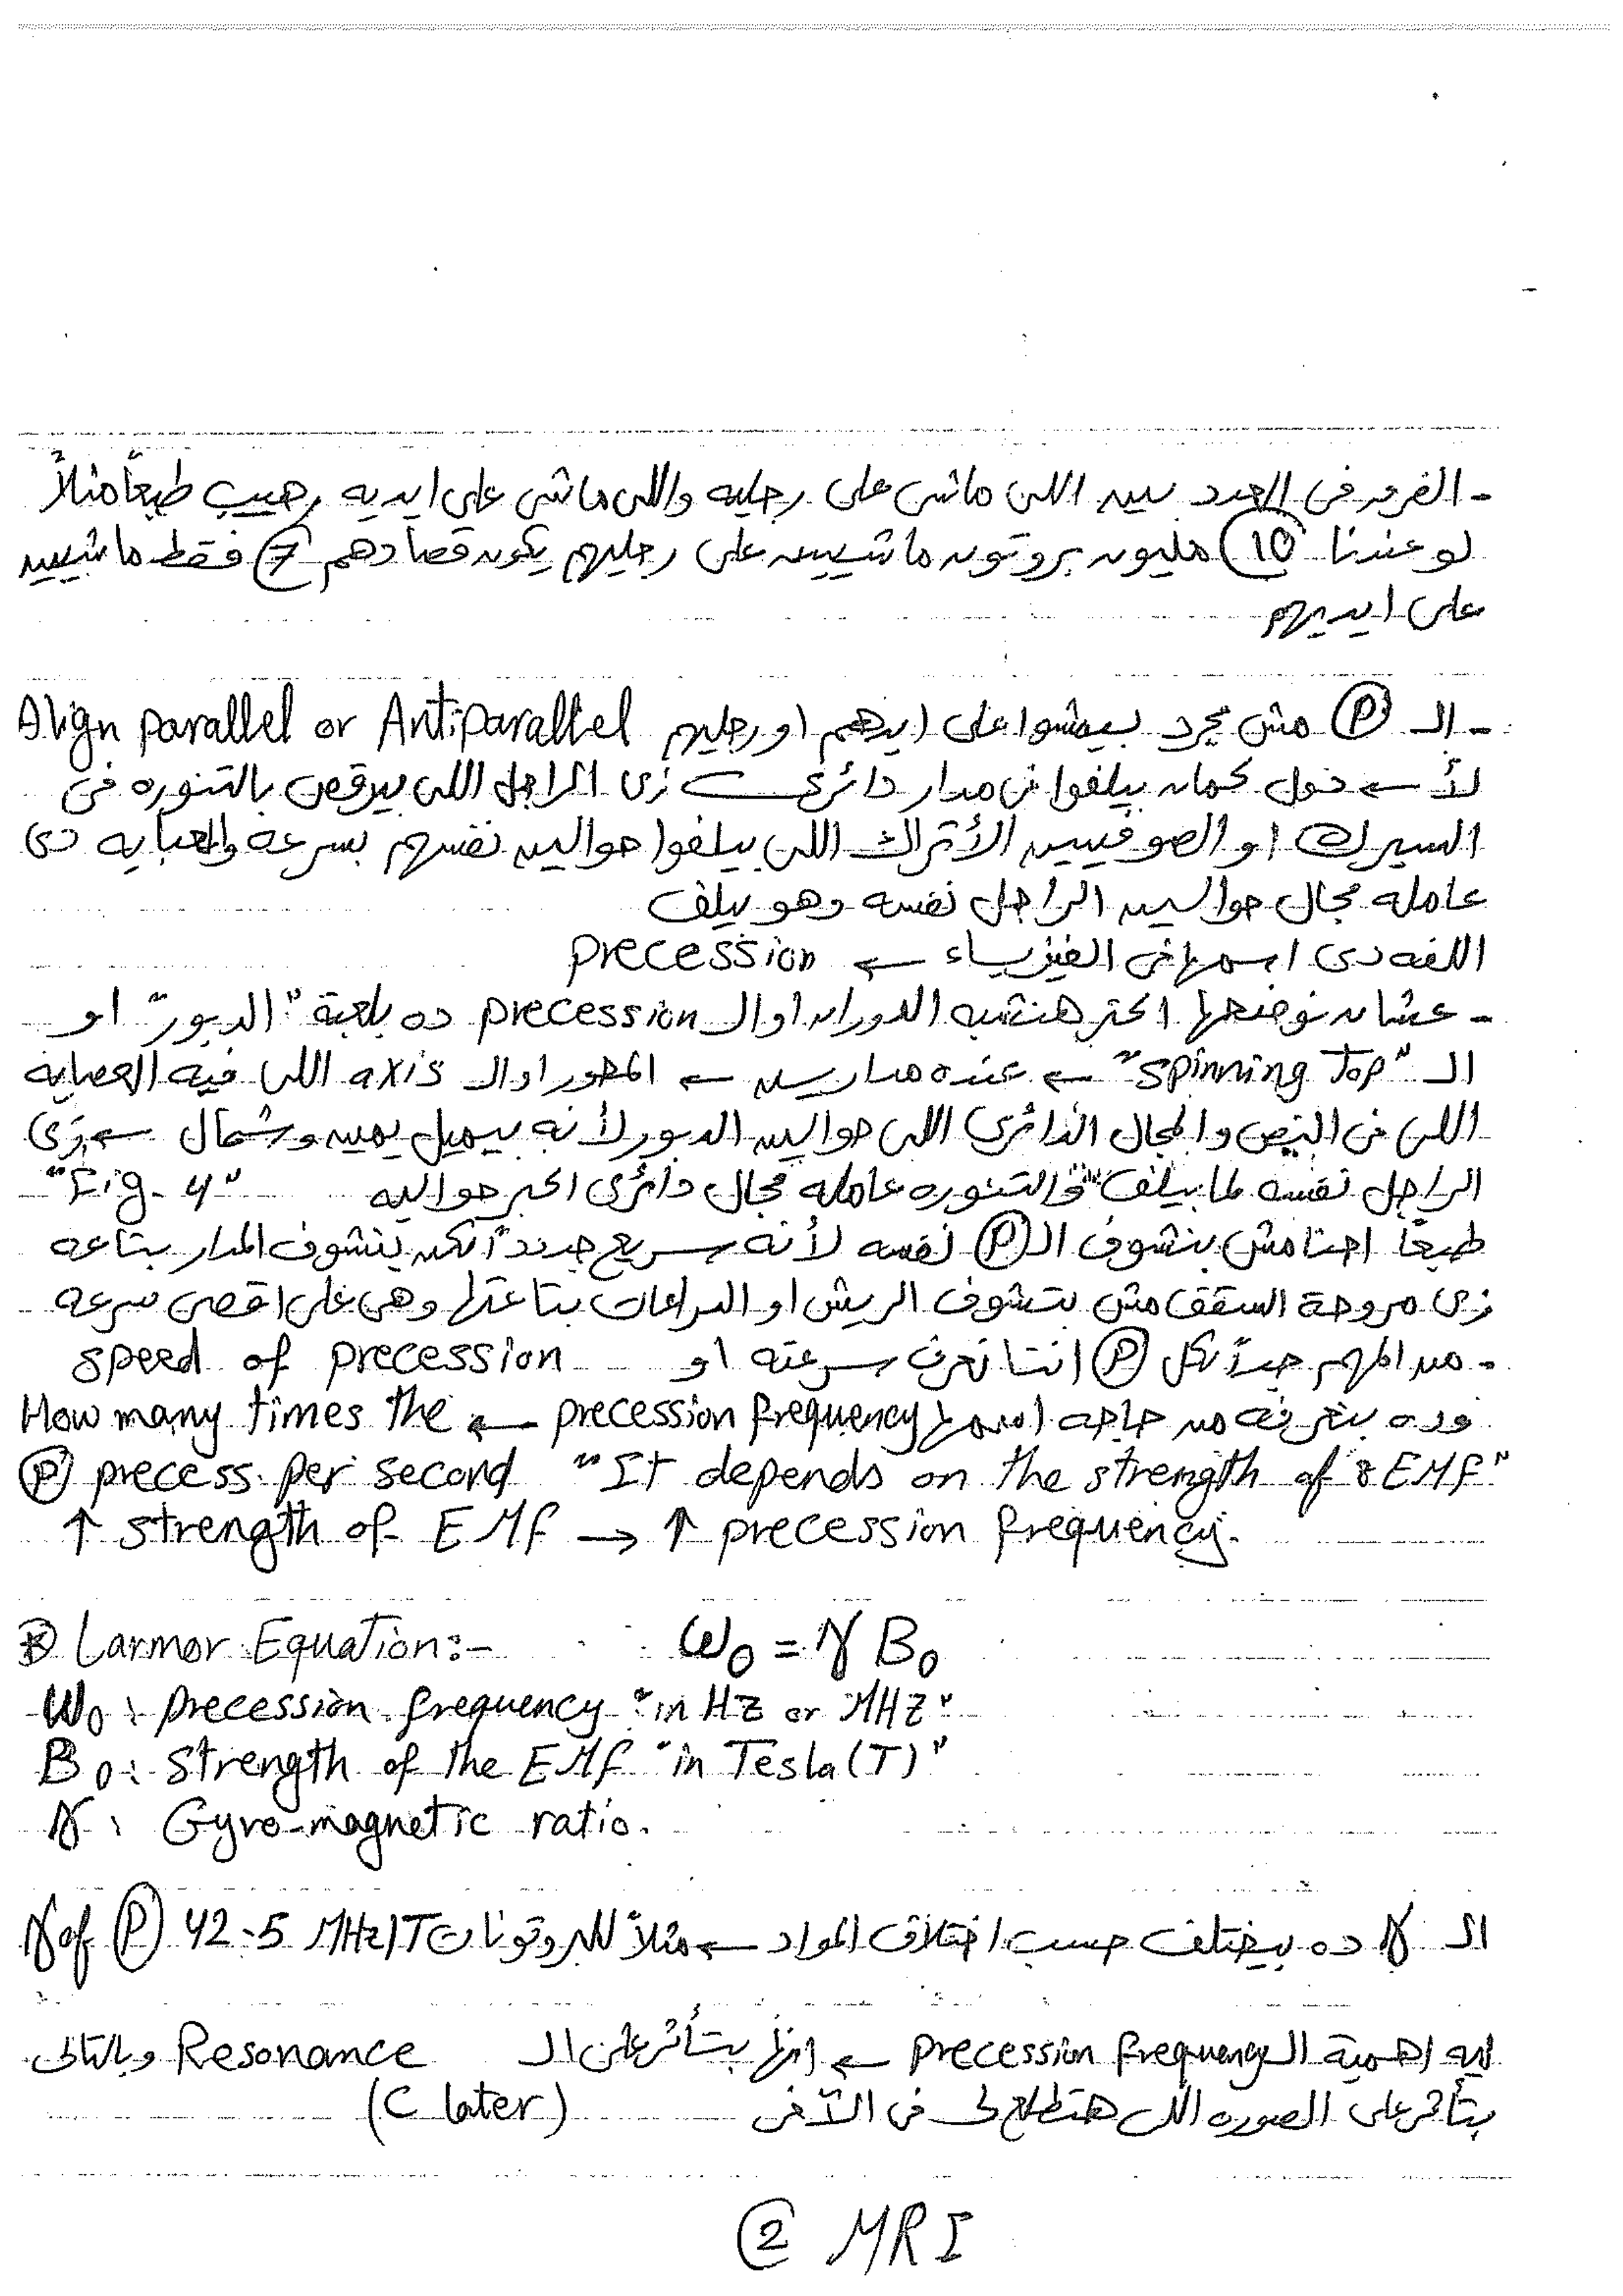 - الفرق فى العدد بين اللى ماشى على رجليه واللى ماشى على ايديه رهيب طبعاً مثلاً
لو عندنا 10 مليون بروتون ماشيين على رجليهم يكون قصادهم 7 فقط ماشيين
على ايديهم
- الـ P مش مجرد بيمشوا على ايدهم او رجليهم Align parallel or Antiparallel
لأ ← دول كمان بيلفوا فى مدار دائرى ← زى الراجل اللى بيرقص بالتنوره فى
السيرك او الصوفيين الأتراك اللى بيلفوا حوالين نفسهم بسرعه والعبايه دى
عامله مجال حوالين الراجل نفسه وهو بيلف
اللفه دى اسمها فى الفيزياء ← precession
- عشان نوضحها اكتر هنشبه الدوران او الـ precession ده بلعبة "الدبور" او
الـ "spinning Top" ← عنده مدارين ← المحور او الـ axis اللى فيه العصايه
اللى فى النص والمجال الدائرى اللى حوالين الدبور لأنه بيميل يمين وشمال ← زى
الراجل نفسه لما بيلف والتنوره عامله مجال دائرى اكبر حواليه "Fig. 4"
طبعاً احنا مش بنشوف الـ P نفسه لأنه سريع جداً لكن بنشوف المدار بتاعه
زى مروحة السقف مش بتشوف الريش او الدراعات بتاعتها وهى على اقصى سرعه
- من المهم جداً لكل P انتا تعرف سرعته او speed of precession
وده بنعرفه من حاجه اسمها precession frequency ← How many times the
P precess per second "It depends on the strength of EMf"
↑ strength of EMf → ↑ precession frequency.
* Larmor Equation:- ω0 = γ B0
ω0 : precession frequency "in Hz or MHz"
B0 : strength of the EMf "in Tesla (T)"
γ : Gyro-magnetic ratio.
الـ γ ده بيختلف حسب اختلاف المواد ← مثلاً للبروتونات γ of P 42.5 MHz/T
ايه اهمية الـ precession frequency ← انها بتأثر على الـ Resonance وبالتالى
بتأثر على الصوره اللى هتطلع لى فى الآخر (C later)
2 MRI